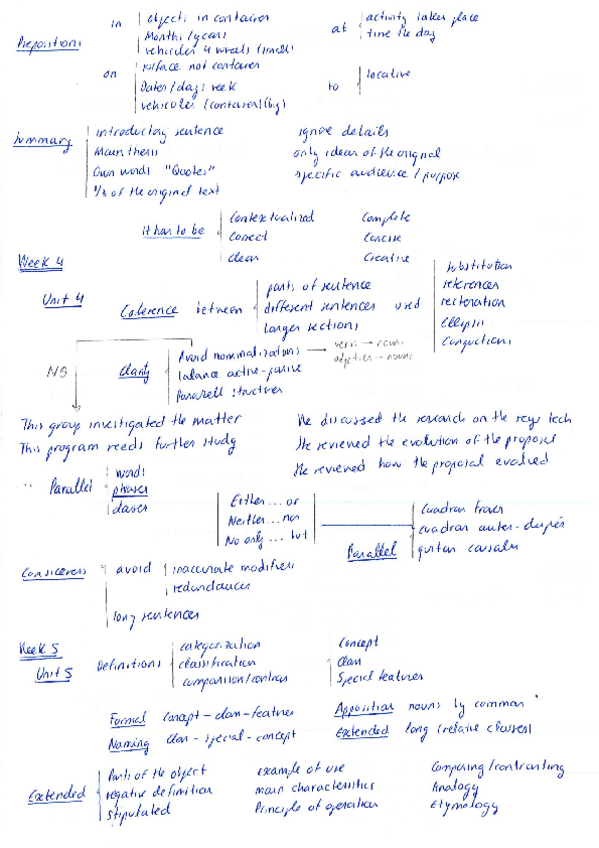 Prepositions
in
objects in container
Months/years
vehicles 4 wheels (small)
at
activity takes place
time the day
on
surface not container
Dates/days week
vehicules (container)(big)
to
locative
Summary
introductory sentence
Main thesis
Own words "Quotes"
1/3 of the original text
ignore details
only ideas of the original
specific audience / purpose
it has to be
Contextualized
Correct
clear
Complete
Concise
Creative
Week 4
Unit 4
Coherence between
parts of sentence
different sentences used
larger sections
substitution
references
Ellipsis
Conjunctions
NO
Clarity
Avoid nominalizations
verbs → nouns
adjectives → nouns
balance active-passive
Pararell structures
This group investigated the matter
This program needs further study
He discussed the research on the tech
He reviewed the evolution of the proposal
He reviewed how the proposal evolved
Parallel
words
phrases
clauses
Either ... or
Neither ... nor
No only ... but
Parallel
Cuadran frases
cuadran antes-después
Conciseness
avoid
inaccurate modifiers
redundances
long sentences
Week 5
Unit 5
Definitions
categorization
classification
comparison/contrast
Concept
Class
Special features
Formal concept - class - features
Naming class - special - concept
Apposition nouns by commas
Extended long (relative clauses)
Extended
Parts of the object
negative definition
Stipulated
example of use
main characteristics
Principle of operation
Comparing/contrasting
Analogy
Etymology